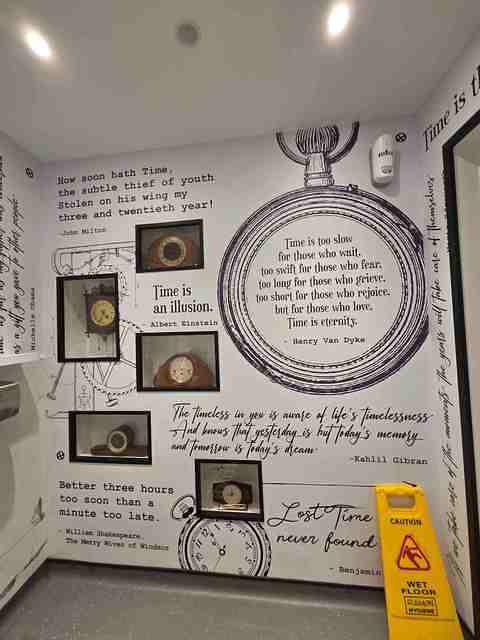 How soon hath Time,
the subtle thief of youth
Stolen on his wing my
three and twentieth year!
-John Milton
Time is
an illusion.
- Albert Einstein
Time is too slow
for those who wait,
too swift for those who fear,
too long for those who grieve,
too short for those who rejoice,
but for those who love,
Time is eternity.
- Henry Van Dyke
The timeless in you is aware of life's timelessness.
And knows that yesterday is but today's memory
and tomorrow is today's dream.
-Kahlil Gibran
Better three hours
too soon than a
minute too late.
- William Shakespeare,
The Merry Wives of Windsor
Lost Time
never found
- Benjamin
Time is th
take care of the moments, the years will take care of themselves
as a gift you give to that people
Michelle Obama
CAUTION
WET
FLOOR
HYGIENE